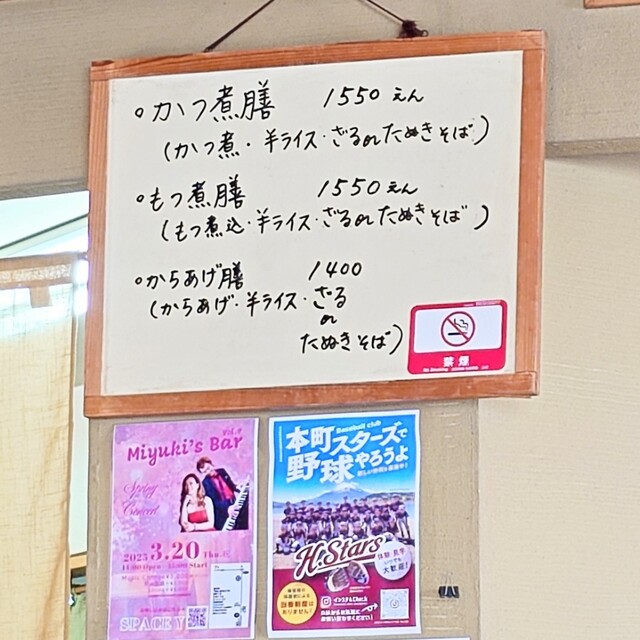 ◦かつ煮膳 1550えん
(かつ煮・半ライス・ざるorたぬきそば)
◦もつ煮膳 1550えん
(もつ煮込・半ライス・ざるorたぬきそば)
◦からあげ膳 1400
(からあげ・半ライス・ざる
or
たぬきそば)
禁煙
Miyuki's Bar
Spring
Concert
2025 3.20 Thu.
SPACE
Baseball club
本町スターズで
野球やろうよ
H.Stars
体験・見学
いつでも
大歓迎!
当番制度は
ありません!